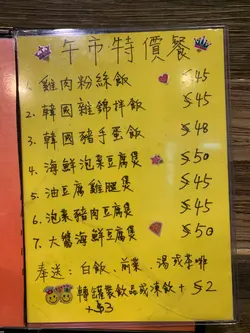 午市特價餐
1. 雞肉粉絲飯 $45
2. 韓國雜錦拌飯 $45
3. 韓國豬手蛋飯 $48
4. 海鮮泡菜豆腐煲 $50
5. 油豆腐雞腿煲 $45
6. 泡菜豬肉豆腐煲 $45
7. 大醬海鮮豆腐煲 $50
奉送：白飯、前菜、湯或茶啡
轉罐裝飲品或凍飲 + $2
+ $3